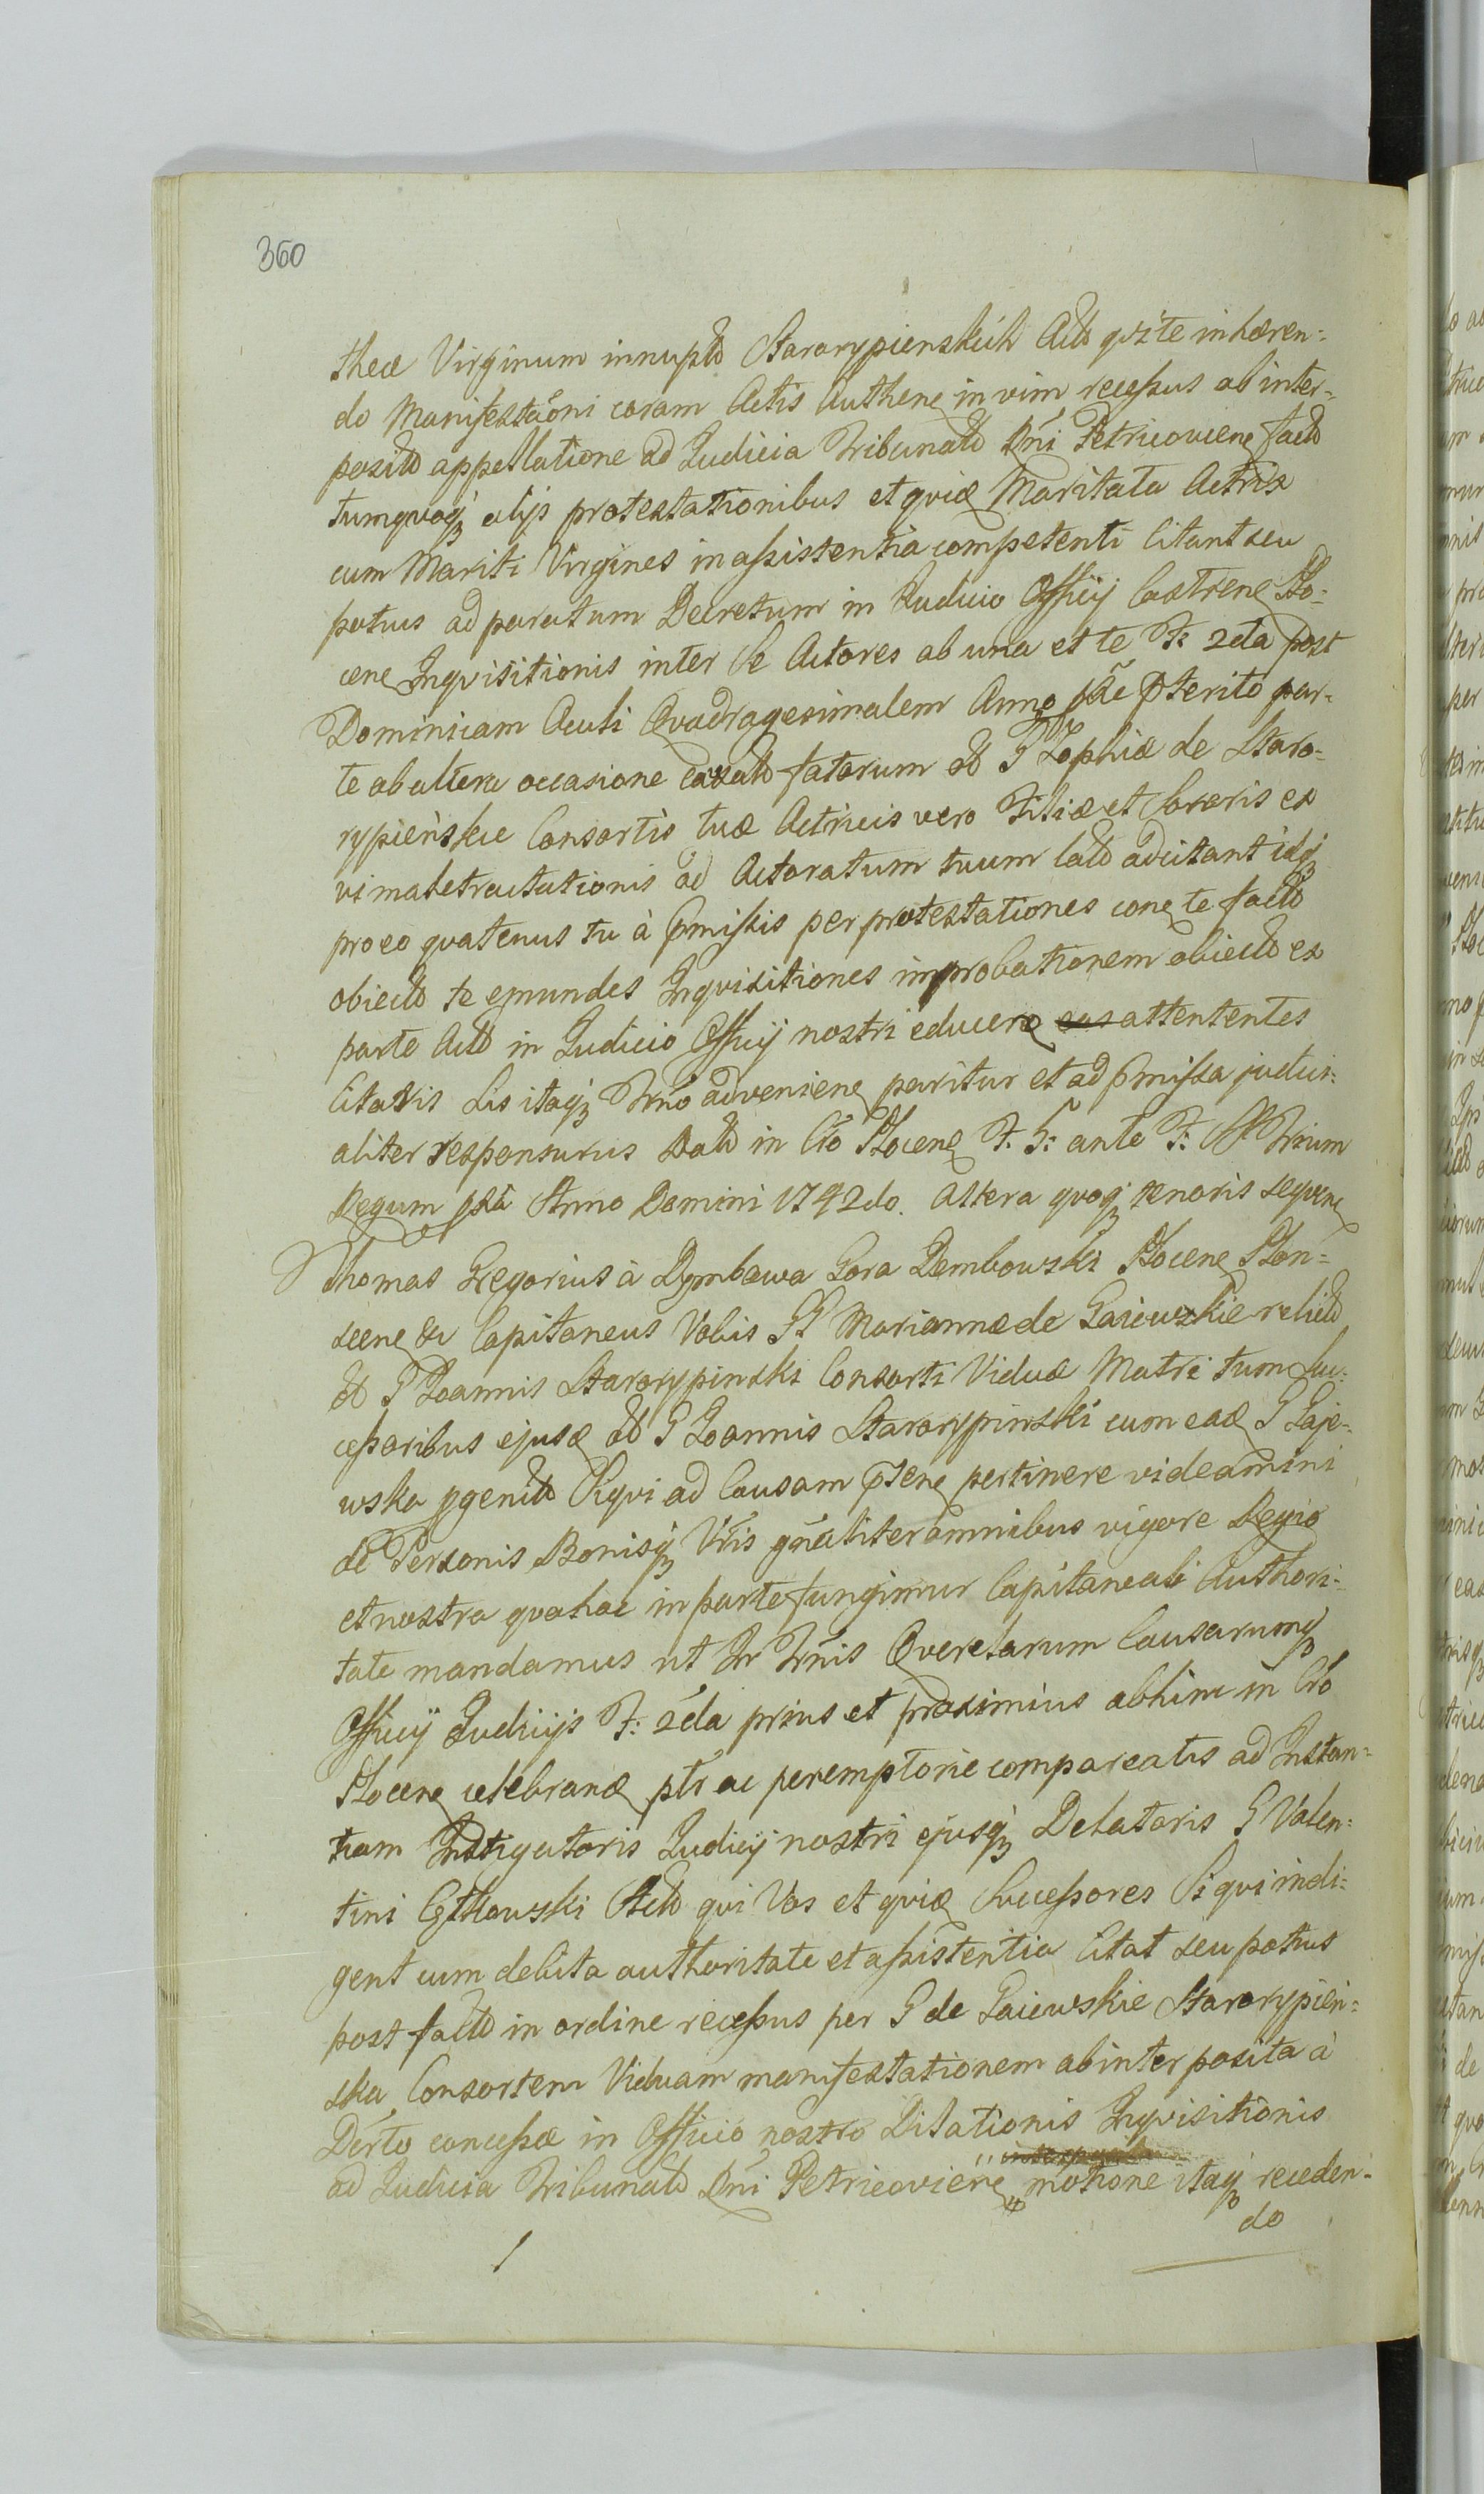 360
theæ Virginum innupto Starorypienskich Acto qvz te inhæren:
do Manifestaõni coram Actis Authene in vim recessus ab inter:
posito appellatione ad Judicia Tribunalo Dni Petricoviene facto
tumqvoq alijs protestationibus et qviæ Maritata Actrix
cum Mariti Virgines in assistentia competenti Citant seu
potius ad paratum Decretum in Judicio Officij Castrene Plo:
cene Inqvisitionis inter se Actores ab una et te F: 2da post
Dominicam Oculi Qvadragesimalem Anno pñe pterito par:
te ab altera occasione fatorum olo G Zophiæ de Staro:
rypieńskie Consortis tuæ Actricis vero Filiæ et Sororis ex
vi maletractationis ad Actoratum tuum lato adcitant idq
pro eo qvatenus tu à pmissis per protestationes cone te facto
obiecto te emundes Inqvisitiones improbationem obiecto ex
parte Acto in Judicio Officij nostri educere eas attententes
Citavis Lis itaq Trno adveniene paritur et ad pmissa judici:
aliter responsurus Dato in Cro Plocene F. 5: ante F: SS Trium
Regum pxa Anno Domini 1742do. Altera qvoq tenoris seqvene
Thomas Gregorius à Dymbowa Gora Dembowski Plocene Plon:
scene &c Capitaneus Vobis GG Mariannæ de Gaiewskie relicto
olo G Joannis Starorypinski Consorti Viduæ Matri tum Suc:
cessoribus ejusd olo G Joannis Starorypinski cum ead G Gaje:
wska pgenito Siqvi ad Causam pstene pertinere videamini
de Personis Bonisq Vris gnaliter omnibus vigore Regia
et nostra qva hac in parte fungimur Capitaneali Authori:
tate mandamus ut In Trnis Qverelarum Causarumq
Officij Judicijs F: 2da prius et proximius abhinc in Cro
Plocene celebrand ptr ac peremptorie compareatis ad Instan:
tiam Instigatoris Judicij nostri ejusq Delatoris G Valen:
tini Cythowski Acto qvi Vos et qviæ Successores Si qvi indi:
gent cum debita authoritate et assistentia Citat seu potius
post facto in ordine recessus per G de Gaiewskie Starorypień:
ska Consortem Viduam manifestationem ab interposita à
Derto concessæ in Officio nostro Dilationis Inqvisitionis
ad Judicia Tribunalo Dni Petricoviene motione itaq receden:
do